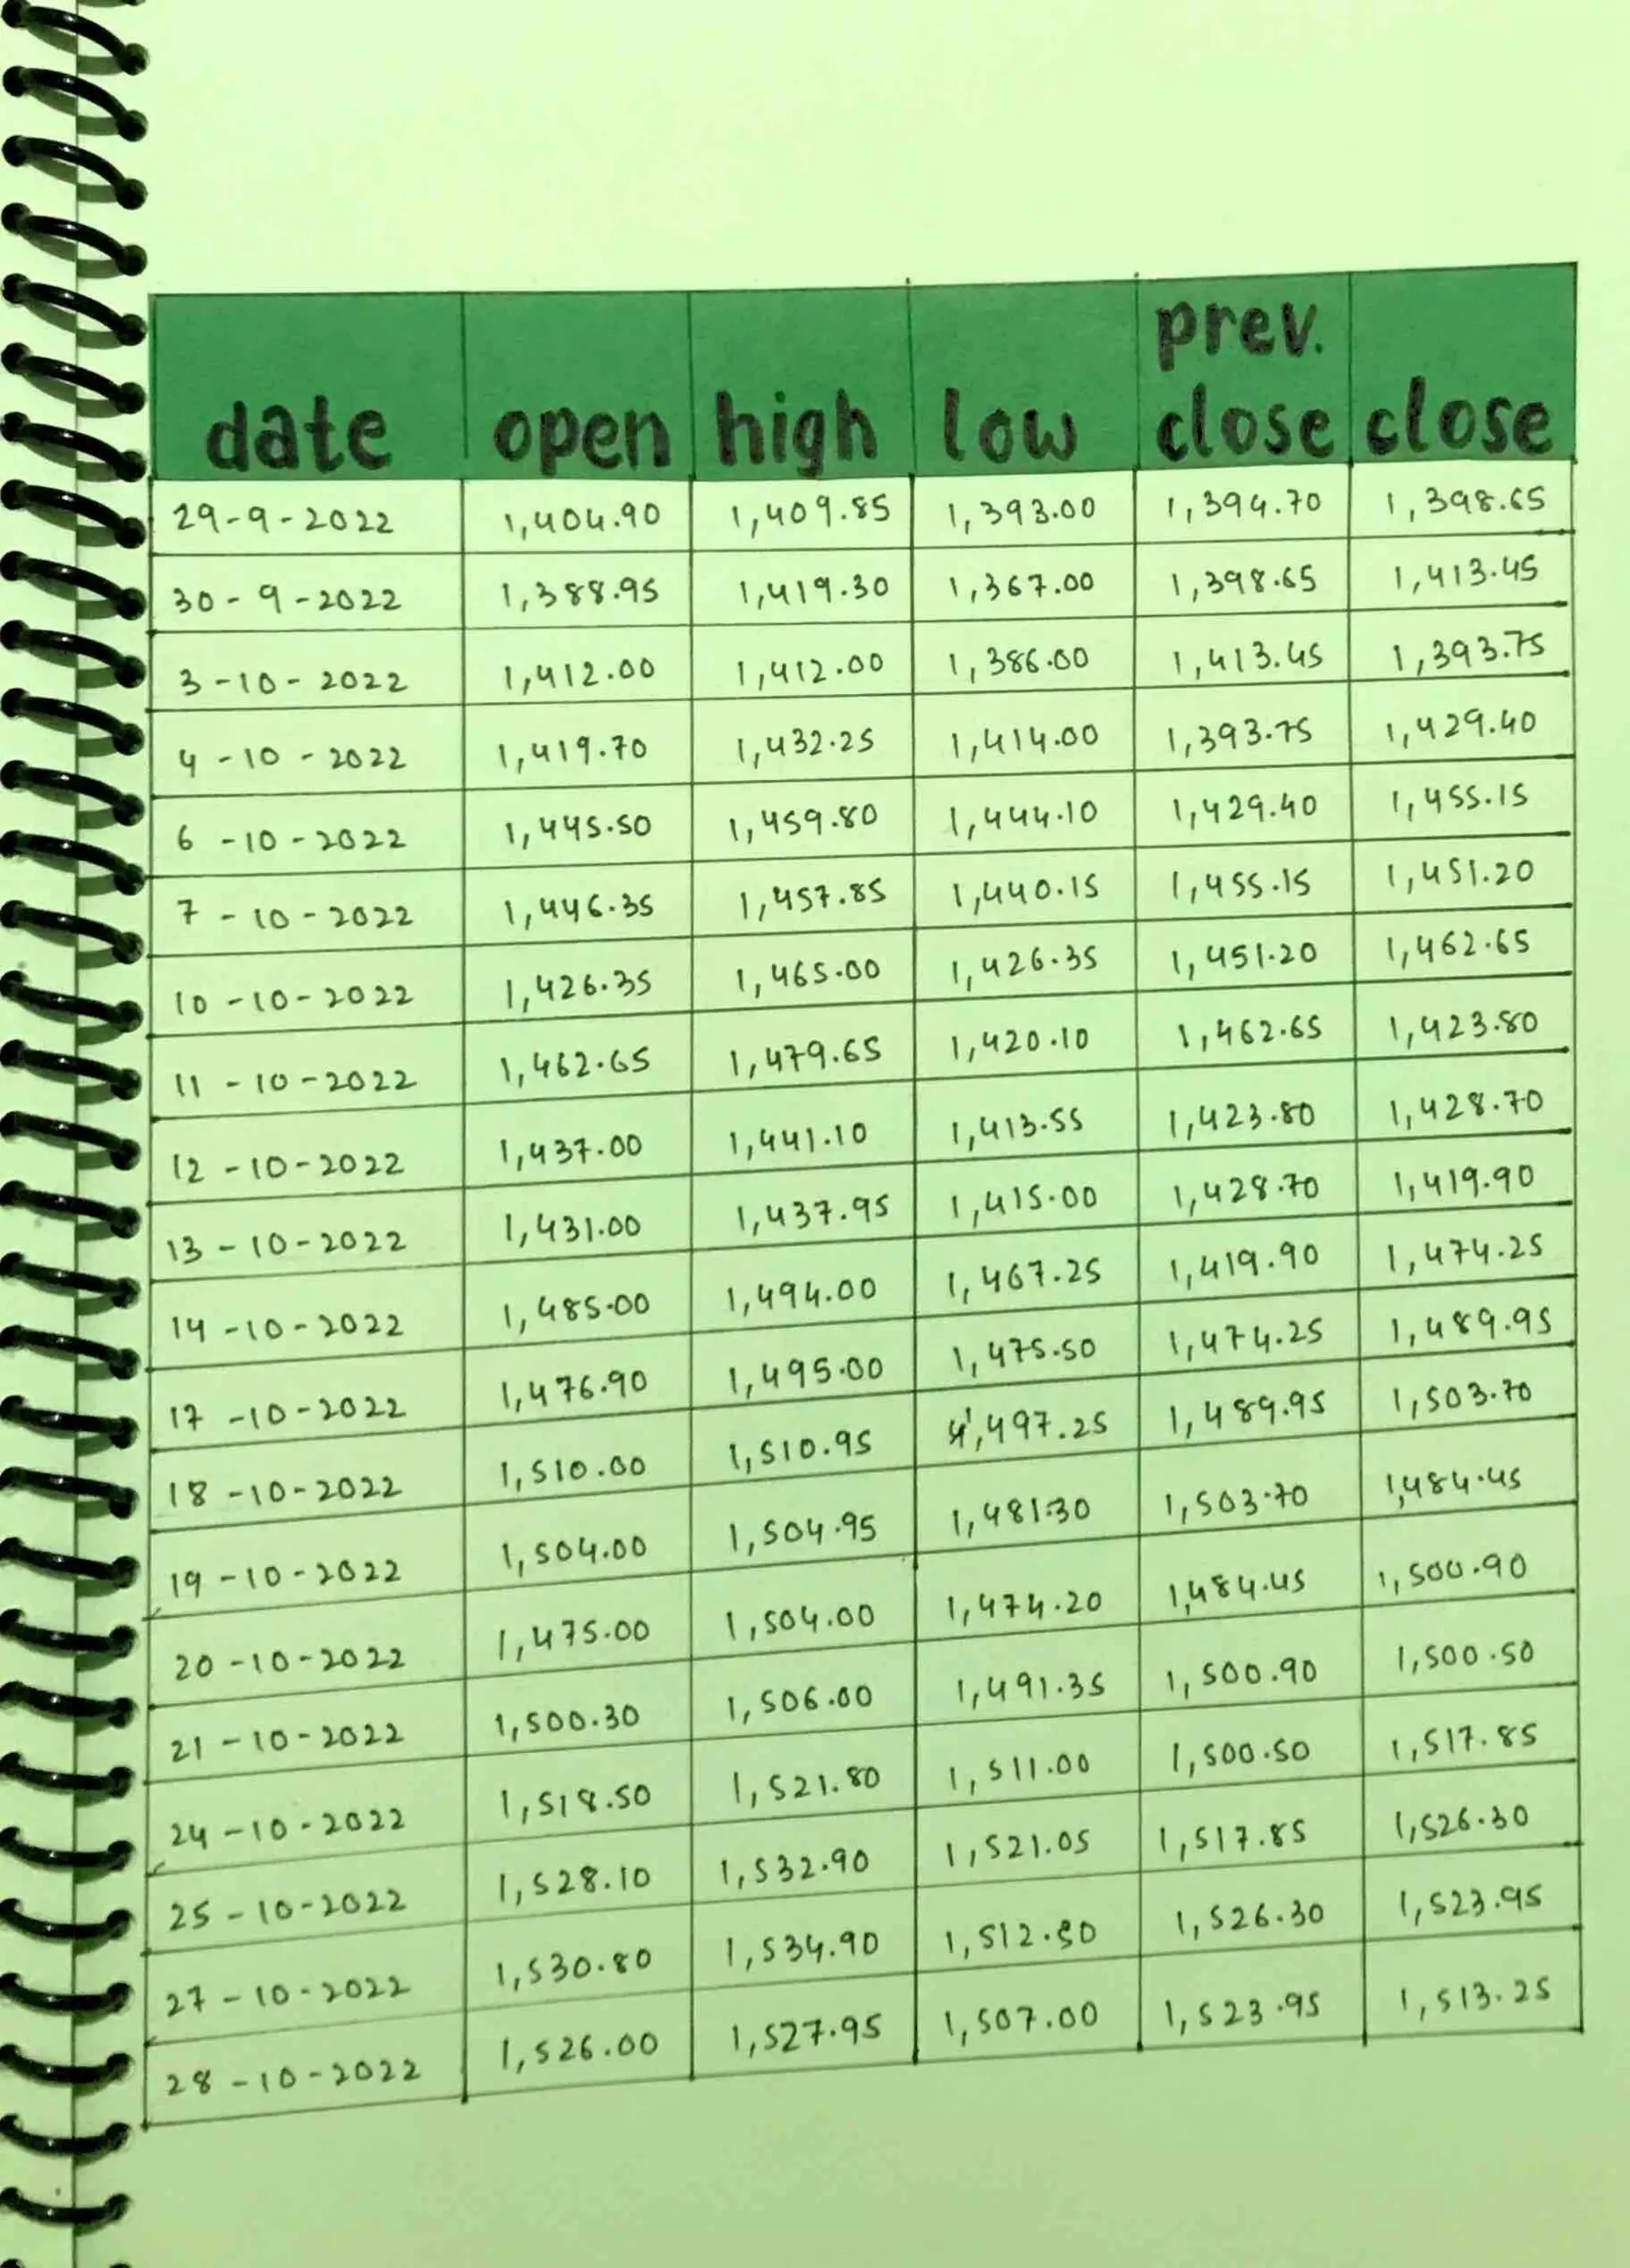 date open high low prev. close close
29-9-2022 1,404.90 1,409.85 1,393.00 1,394.70 1,398.65
30-9-2022 1,388.95 1,419.30 1,367.00 1,398.65 1,413.45
3-10-2022 1,412.00 1,412.00 1,386.00 1,413.45 1,393.75
4-10-2022 1,419.70 1,432.25 1,414.00 1,393.75 1,429.40
6-10-2022 1,445.50 1,459.80 1,444.10 1,429.40 1,455.15
7-10-2022 1,446.35 1,457.85 1,440.15 1,455.15 1,451.20
10-10-2022 1,426.35 1,465.00 1,426.35 1,451.20 1,462.65
11-10-2022 1,462.65 1,479.65 1,420.10 1,462.65 1,423.80
12-10-2022 1,437.00 1,441.10 1,413.55 1,423.80 1,428.70
13-10-2022 1,431.00 1,437.95 1,415.00 1,428.70 1,419.90
14-10-2022 1,485.00 1,494.00 1,467.25 1,419.90 1,474.25
17-10-2022 1,476.90 1,495.00 1,475.50 1,474.25 1,489.95
18-10-2022 1,510.00 1,510.95 1,497.25 1,489.95 1,503.70
19-10-2022 1,504.00 1,504.95 1,481.30 1,503.70 1,484.45
20-10-2022 1,475.00 1,504.00 1,474.20 1,484.45 1,500.90
21-10-2022 1,500.30 1,506.00 1,491.35 1,500.90 1,500.50
24-10-2022 1,518.50 1,521.80 1,511.00 1,500.50 1,517.85
25-10-2022 1,528.10 1,532.90 1,521.05 1,517.85 1,526.30
27-10-2022 1,530.80 1,534.90 1,526.30 1,523.95
28-10-2022 1,526.00 1,527.95 1,507.00 1,523.95 1,513.25